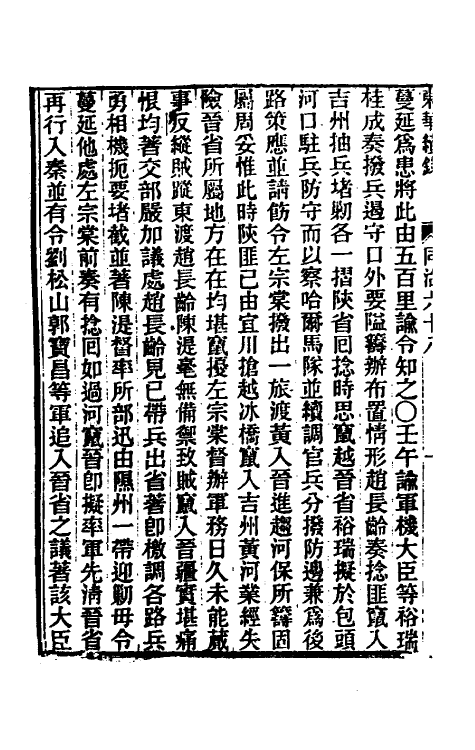 東華續錄 同治六十八
蔓延爲患將此由五百里諭令知之〇壬午諭軍機大臣等裕瑞
桂成奏撥兵過守口外要隘籌辦布置情形趙長齡奏捻匪竄入
吉州抽兵堵剿各一摺陝省回捻時思竄越晉省裕瑞擬於包頭
河口駐兵防守而以察哈爾馬隊並續調官兵分撥防邊兼爲後
路策應並請飭令左宗棠撥出一旅渡黃入晉進趨河保所籌固
屬周妥惟此時陝匪已由宜川搶越冰橋竄入吉州黃河業經失
險晉省所屬地方在在均堪竄擾左宗棠督辦軍務日久未能蕆
事反縱賊蹤東渡趙長齡陳湜毫無備禦致賊竄入晉疆實堪痛
恨均著交部嚴加議處趙長齡見已帶兵出省著卽檄調各路兵
勇相機扼要堵截並著陳湜督率所部迅由隰州一帶迎剿毋令
蔓延他處左宗棠前奏有捻回如過河竄晉卽擬率軍先清晉省
再行入秦並有令劉松山郭寶昌等軍追入晉省之議著該大臣